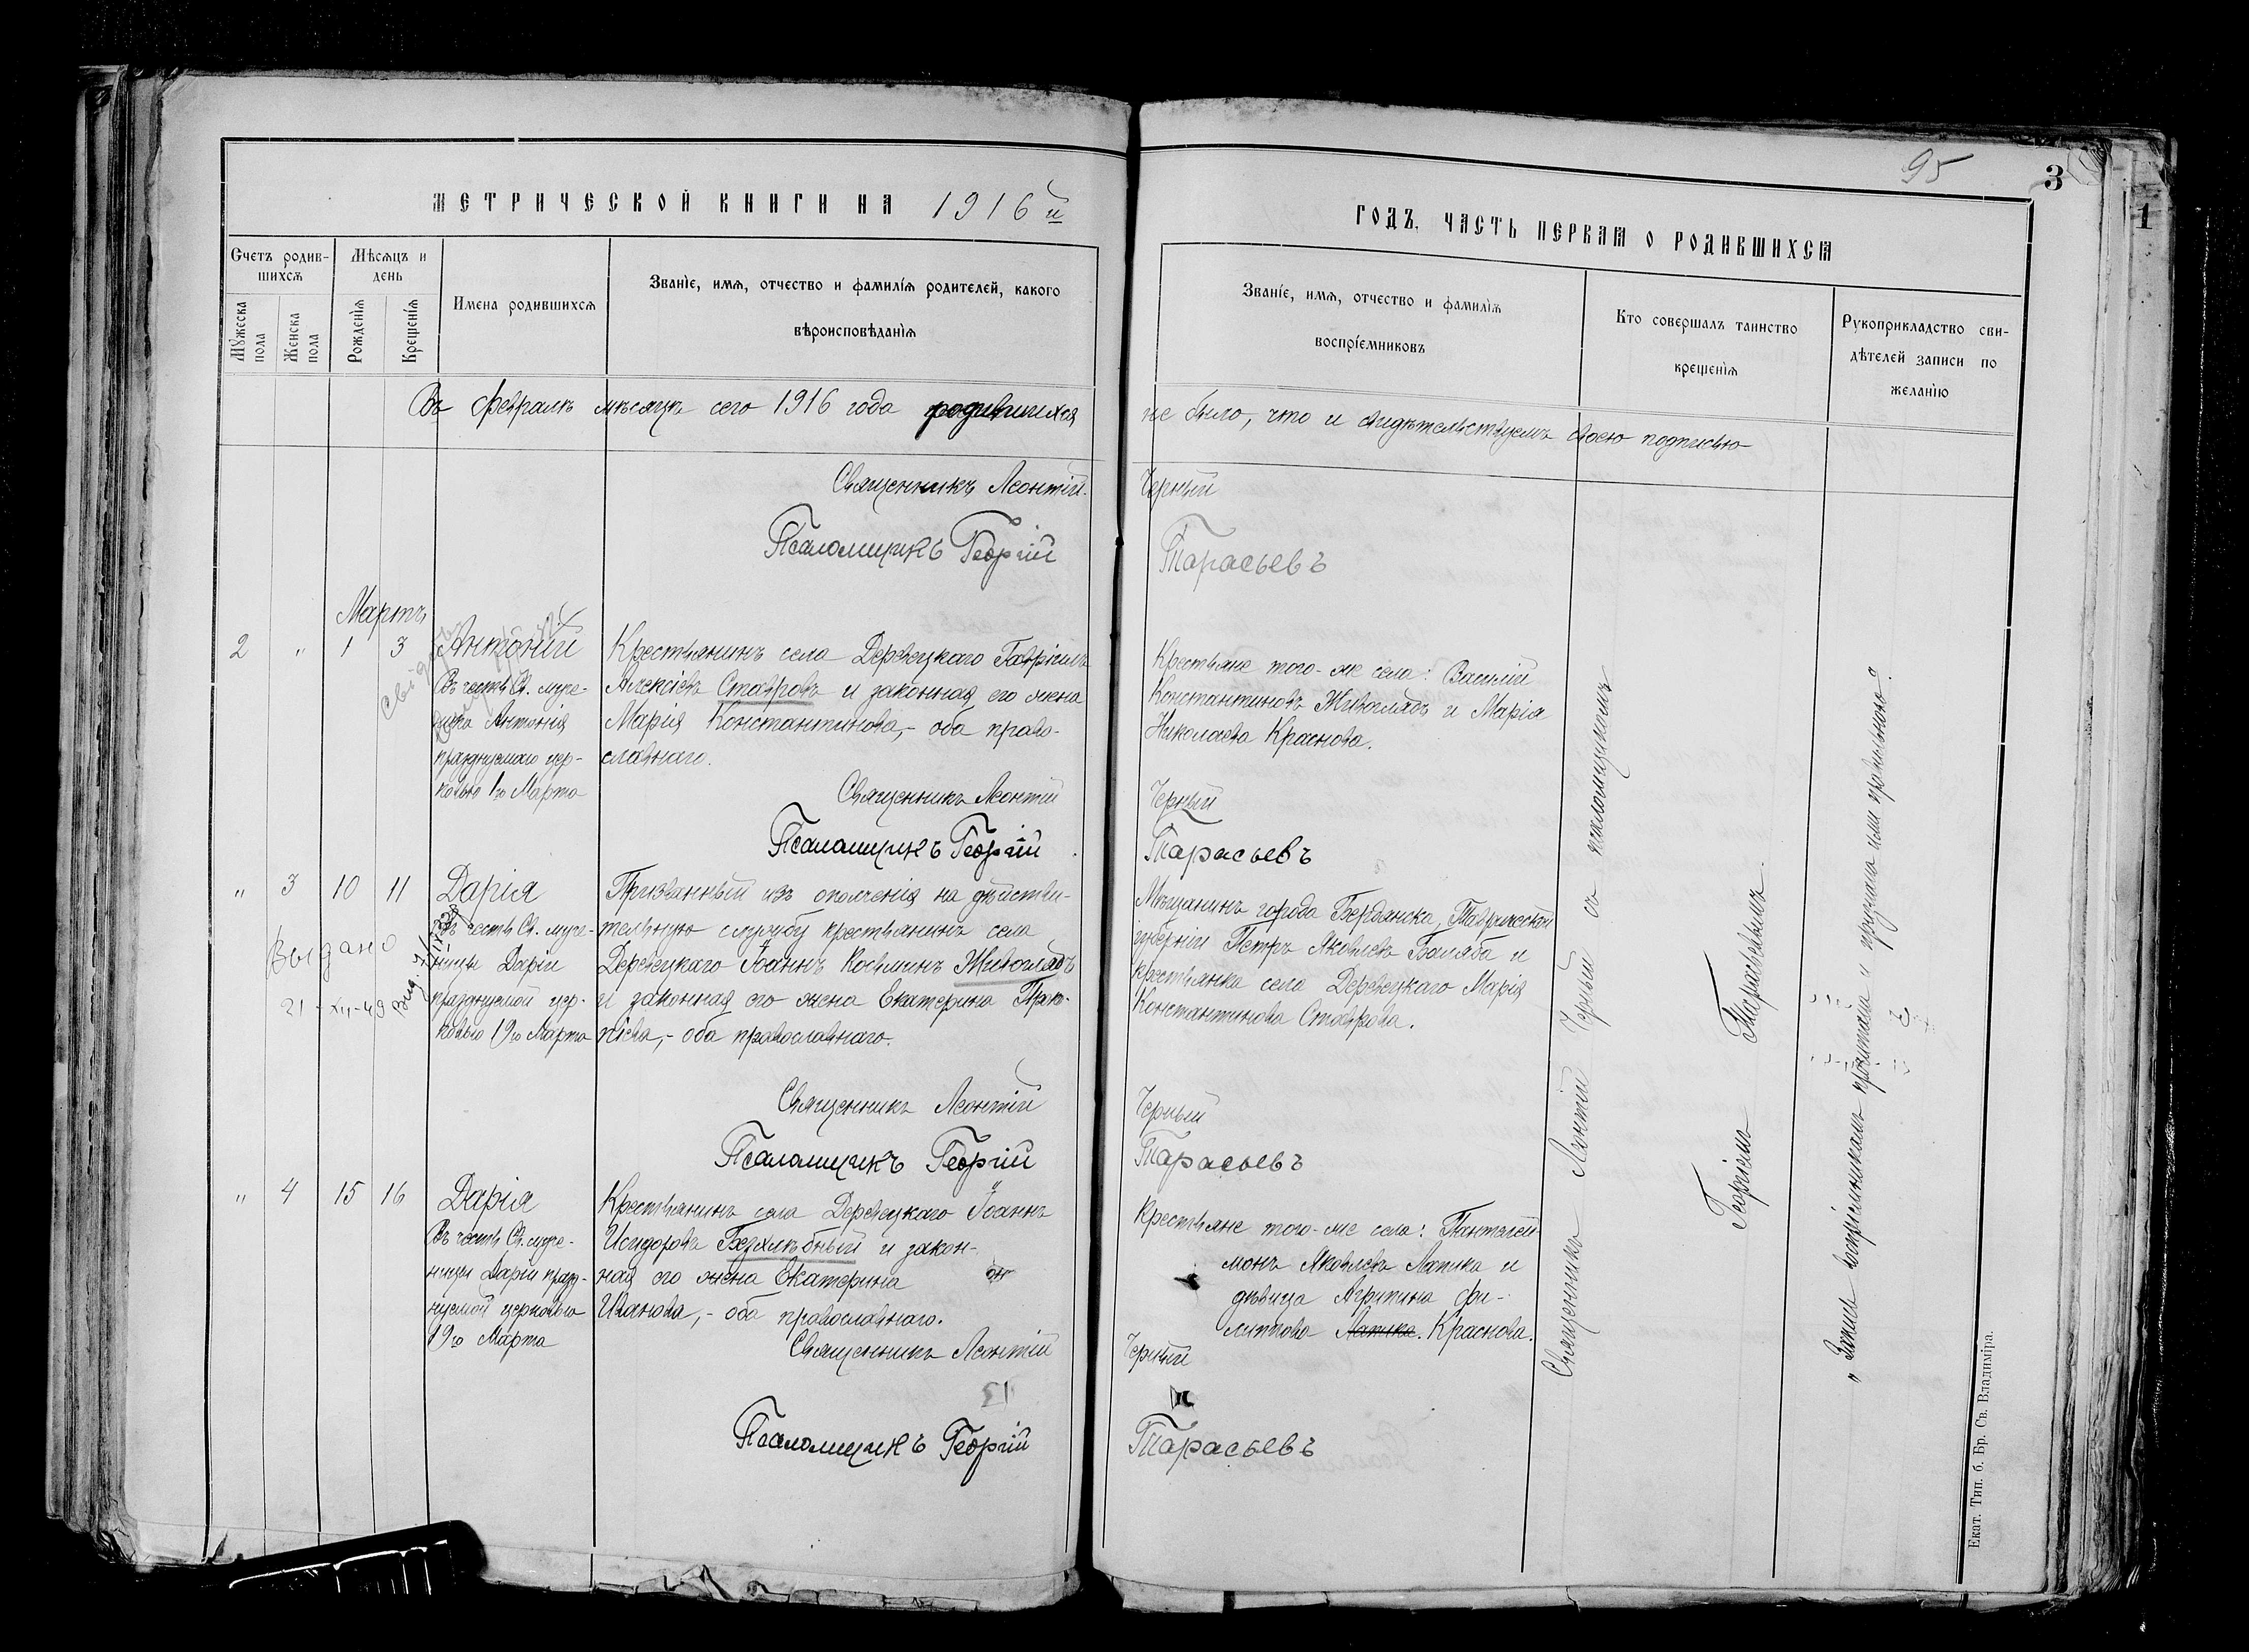 95
3
1
МЕТРИЧЕСКОЙ КНИГИ НА 1916 й
ГОДЪ, ЧАСТЬ ПЕРВАЯ О РОДИВШИХСЯ
Счетъ родившихся
Мужеска пола
Женска пола
Мѣсяцъ и день
Рожденія
Крещенія
Имена родившихся
Званіе, имя, отчество и фамилія родителей, какого
вѣроисповѣданія
Званіе, имя, отчество и фамилія
воспріемниковъ
Кто совершалъ таинство
крещенія
Рукоприкладство сви-
дѣтелей записи по
желанію
Въ Февралѣ мѣсяцѣ сего 1916 года родившихся не было, что и свидѣтельствуемъ своею подписью
Священникъ Леонтій Черный
Псаломщикъ Георгій Тарасьевъ
Мартъ
2 " 1 3 Антоній
Въ честь Св. муче-
ника Антонія
празднуемаго цер-
ковью 1го Марта
Крестьянинъ села Деревецкаго Гавріилъ
Алексіевъ Ставровъ и законная его жена
Марія Константинова,- оба право-
славнаго.
Крестьяне того-же села: Василій
Константиновъ Живогладъ и Марія
Николаева Краснова.
Священникъ Леонтій Черный
Псаломщикъ Георгій Тарасьевъ
" 3 10 11 Дарія
Въ честь Св. муче-
ницы Даріи
празднуемой цер-
ковью 19го Марта
Выдано
21-XII-49
Призванный изъ ополченія на дѣйстви-
тельную службу крестьянинъ села
Деревецкаго Іоаннъ Косминъ Живогладъ
и законная его жена Екатерина Про-
піева,- оба православнаго.
Мѣщанинъ города Бердянска, Таврической
губерніи Петръ Яковлевъ Баляба и
крестьянка села Деревецкаго Марія
Константинова Ставрова.
Священникъ Леонтій Черный
Псаломщикъ Георгій Тарасьевъ
" 4 15 16 Дарія
Въ честь Св. муче-
ницы Даріи празд-
нуемой церковью
19го Марта
Крестьянинъ села Деревецкаго Іоаннъ
Исидоровъ Безхлѣбный и закон-
ная его жена Екатерина
Иванова,- оба православнаго.
Крестьяне того-же села: Пантелей-
монъ Яковлевъ Латка и
дѣвица Агрипина Фи-
липпова Латка. Краснова.
Священникъ Леонтій Черный
Псаломщикъ Георгій Тарасьевъ
Священникъ Леонтій Черный съ псаломщикомъ
Георгіемъ Тарасьевымъ.
"Запись воспріемникамъ прочитана и признана ими правильною".
Екат. Тип. б. Бр. Св. Владиміра.